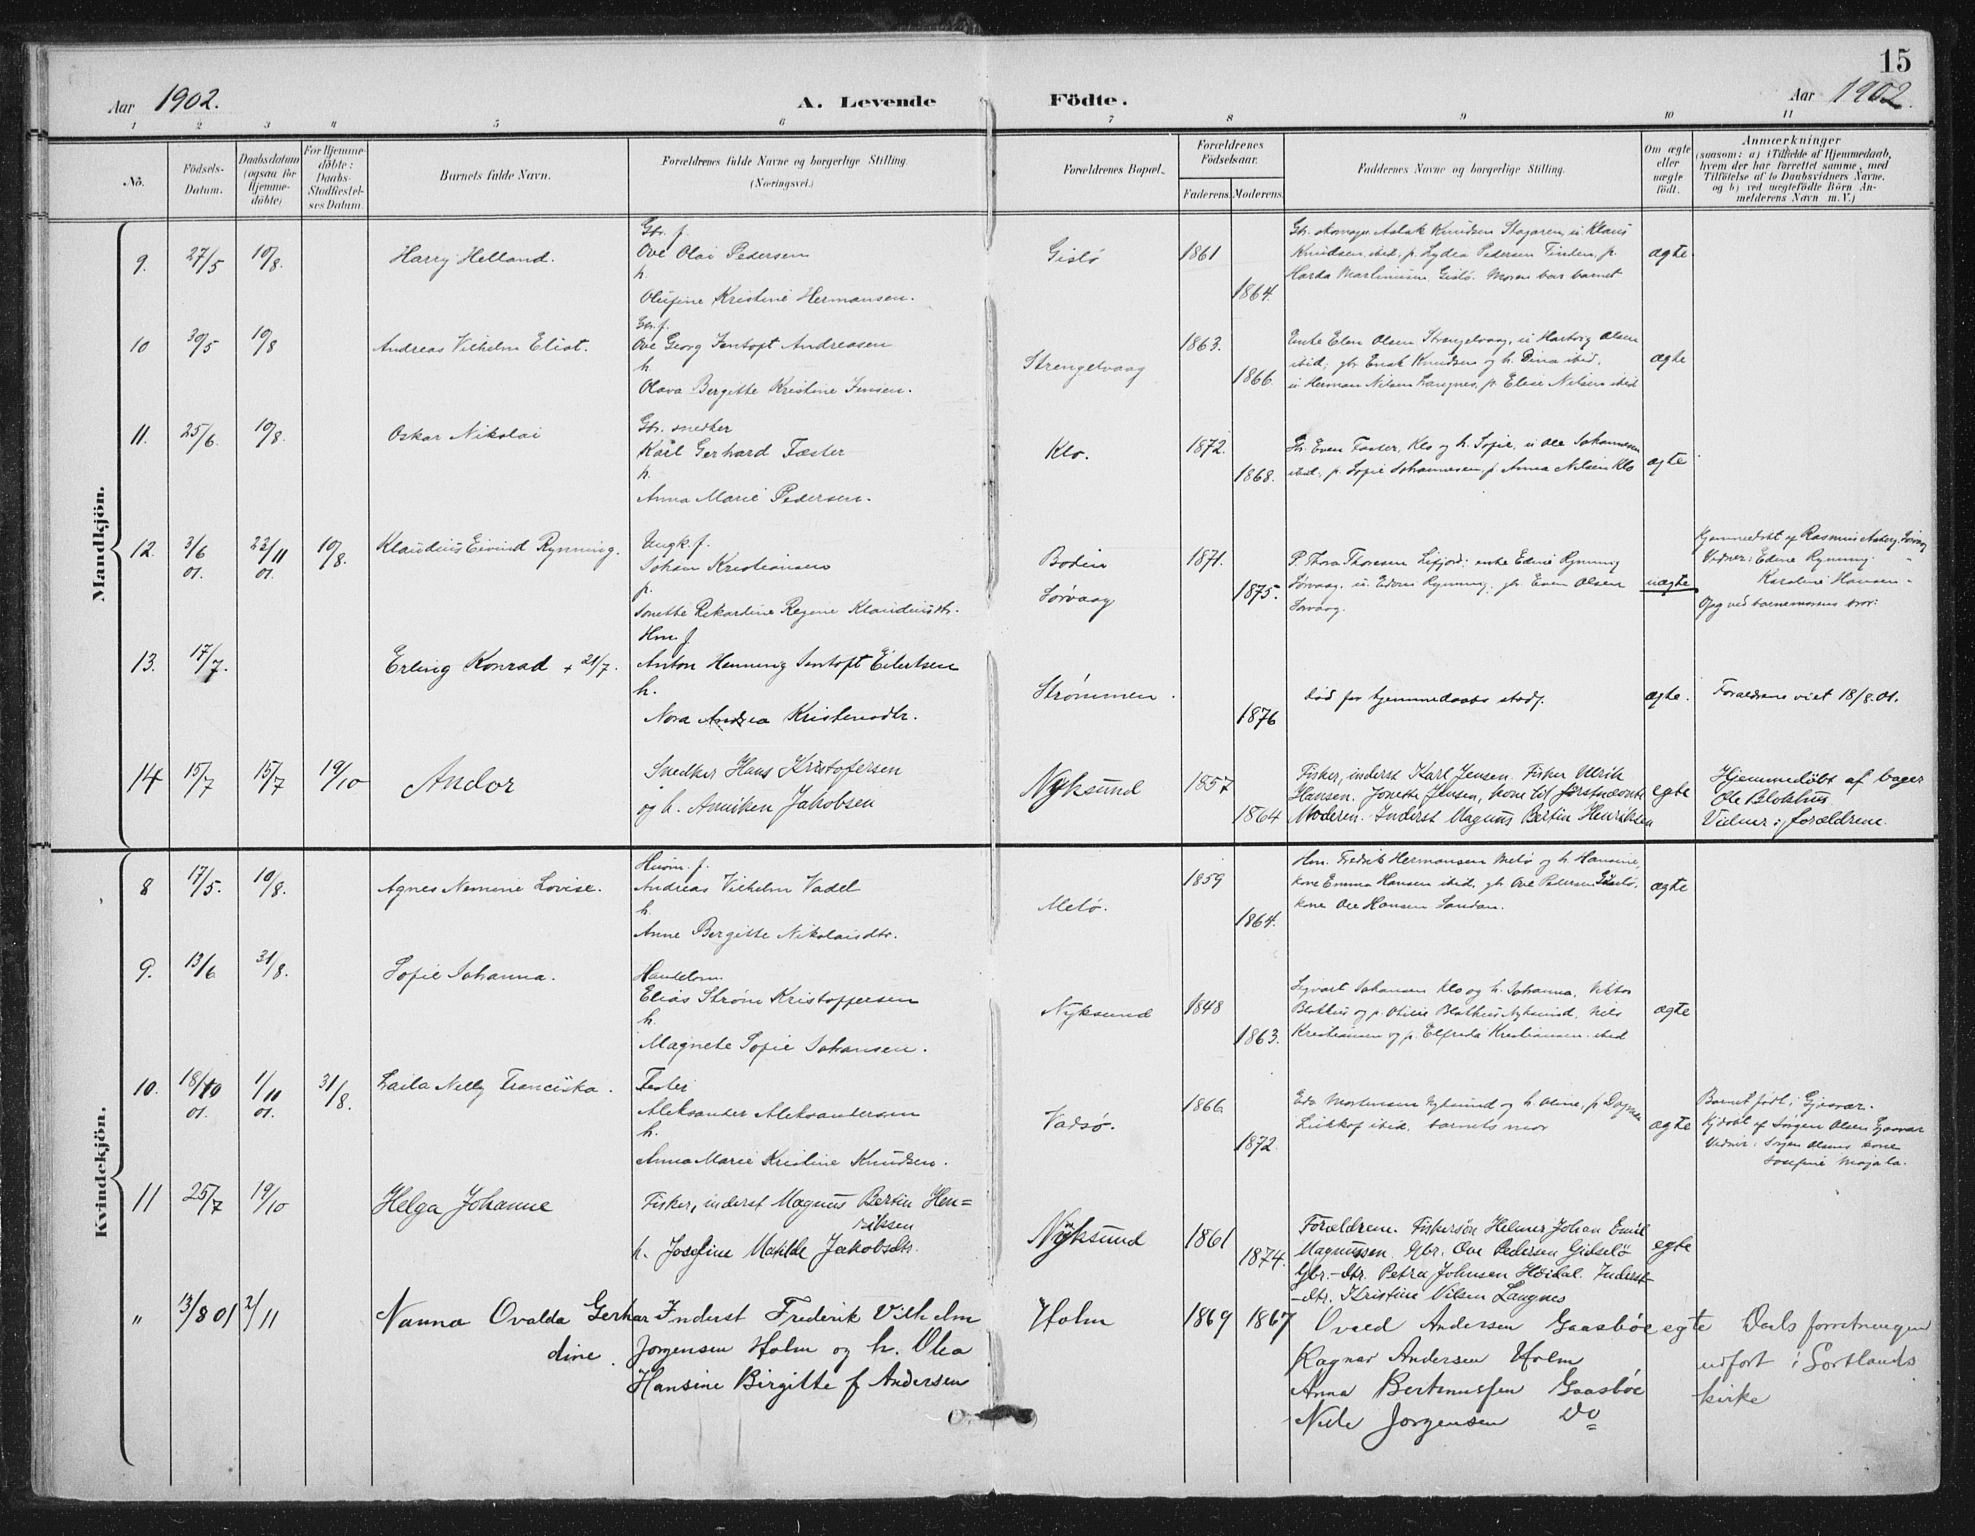 15
Aar 1902. A. Levende Födte. Aar 1902.
1 2 3 4 5 6 7 8 9 10 11
No.
Födsels-
Datum.
Daabsdatum
(ogsaa for
Hjemme-
döbte)
For Hjemme-
döbte:
Daabs-
Stadfæstel-
ses Datum.
Barnets fulde Navn.
Forældrenes fulde Navne og borgerlige Stilling.
(Næringsvei.)
Forældrenes Bopæl.
Forældrenes
Födselsaar.
Faderens Moderens
Faddernes Navne og borgerlige Stilling.
Om ægte
eller
uægte
födt.
Anmærkninger
(saasom: a) i Tilfælde af Hjemmedaab,
hvem der har forrettet samme, med
Tilföielse af to Daabsvidners Navne,
og b) ved uægtefödte Börn An-
melderens Navn m. V.)
Mandkjön.
9. 27/5 10/8. Harry Helland.
Gbr. f.
Ove Olai Pedersen
h.
Olufine Kristine Hermansen.
Gislö 1861
1864.
Knudsen ibid, p. Lydia Pedersen Tinden, p.
Harda Martinusen Gislö. Moren bar barnet
ægte
10 30/5 10/8 Andreas Vilhelm Eliot.
Gbr. f.
Ove Georg Jentoft Andreasen
h.
Olava Bergitte Kristine Jensen.
Strengelvaag
1863.
1866.
Enke Elen Olsen Strengelvaag, u. Hartvig Olsen
ibid, gbr. Enok Knudsen og h. Dina ibid,
u. Herman Nilsen Langnes, p. Elise Nilsen ibid
ægte
11. 25/6. 10/8. Oskar Nikolai
Gbr. snedker
Karl Gerhard Fæster
h.
Anna Marie Pedersen.
Klo.
1872.
1868.
Gbr. Even Fæster, Klo og h. Sofie, u. Ole Johannesen
ibid; p. Sofie Johannesen, p. Anna Nilsen Klo
ægte
12. 3/6 01. 23/11 01. 10/8. Klaudius Eivind Rynning.
Ungk. f.
Johan Kristiansen
p.
Jonette Rikardine Regine Klaudiusdtr.
Bodin
Sørvaag
1871.
1875.
P. Thora Thoresen Lifjord; enke Edine Rynning
Sørvaag, u. Edvin Rynning; gbr. Even Olsen
Sørvaag.
uægte
Hjemmedøbt af Rasmus Aaberg, Sørvaag
Vidner: Edine Rynning. "
Karoline Hansen "
Opg. ved barnemorens bror.
13. 17/7. Erling Konrad + 21/7.
Hm. f.
Anton Henning Jentoft Eilertsen
h.
Nora Andrea Kristensdtr.
Strømmen.
1876
død før hjemmedaabs stadf.
ægte.
Forældrene viet 18/8.01.
14 15/7 15/7 19/10 Andor
Snedker Hans Kristofersen
og h. Anniken Jakobsen
Nyksund
1857
1864
Fisker, inderst Karl Jensen. Fisker Ulrik
Hansen. Jonette Jensen, kone til førstnævnte.
Moderen. Inderst Magnus Bertin Henriksen
egte
Hjemmedøbt af bager
Ole Blokhus
Vidner: forældrene.
Kvindekjön.
8 17/5. 10/8. Agnes Nemine Lovise.
Husm. f.
Andreas Vilhelm Vadel
h.
Anne Bergitte Nikolaisdtr.
Melø.
1859
1864.
Hm. Fredrik Hermansen Melø og h. Hansine,
kone Emma Hansen ibid, gbr. Ove Pedersen Gislø,
kone Ole Hansen Sandan.
ægte
9. 13/6 31/8. Sofie Johanna.
Handelsm.
Elias Strøm Kristoffersen
h.
Magnete Sofie Johansen.
Nyksund
1848
1863.
Sigvart Johansen Klo og h. Johanna, Viktor
Blokhus og p. Otilie Blokhus Nyksund, Nils
Kristiansen og p. Elfrida Kristiansen ibid
ægte
10. 18/10 01. 1/11 01. 31/8. Laila Nelly Franciska.
Fisker
Aleksander Aleksandersen
h.
Anna Marie Kristine Knudsen.
Vadsø.
1866
1872.
Edv. Mortensen Nyksund og h. Oline, p. Dagmar
ibid. barnets mor
ægte
Barnet født i Gjesvær.
Hjdøbt af Jørgen Olsen Gjesvær
Vidner: Jørgen Olsens kone
Josefine Majala.
11 25/7 19/10 Helga Johanne
Fisker, inderst Magnus Bertin Hen=
riksen
h. Josefine Matilde Jakobsdtr.
Nyksund
1861
1874.
Forældrene. Fiskersøn Helmer Johan Emil
Magnussen. Gbr. Ove Pedersen Gidselø
Gbr.-dtr. Petra Johnsen Høidal. Inderst-
dtr. Kristine Nilsen Langnes
egte
" 13/8 01 2/11 Nanna Ovalda Gerhar
dine.
Inderst Frederik Vilhelm
Jørgensen Holm og h. Olea
Hansine Birgitte f. Andersen
Holm 1869 1867
Ovald Andersen Gaasbøe
Ragnar Andersen Holm
Anna Bertinussen Gaasbøe
Nils Jørgensen Do
egte
Daabsforretningen
udført i Sortlands
kirke